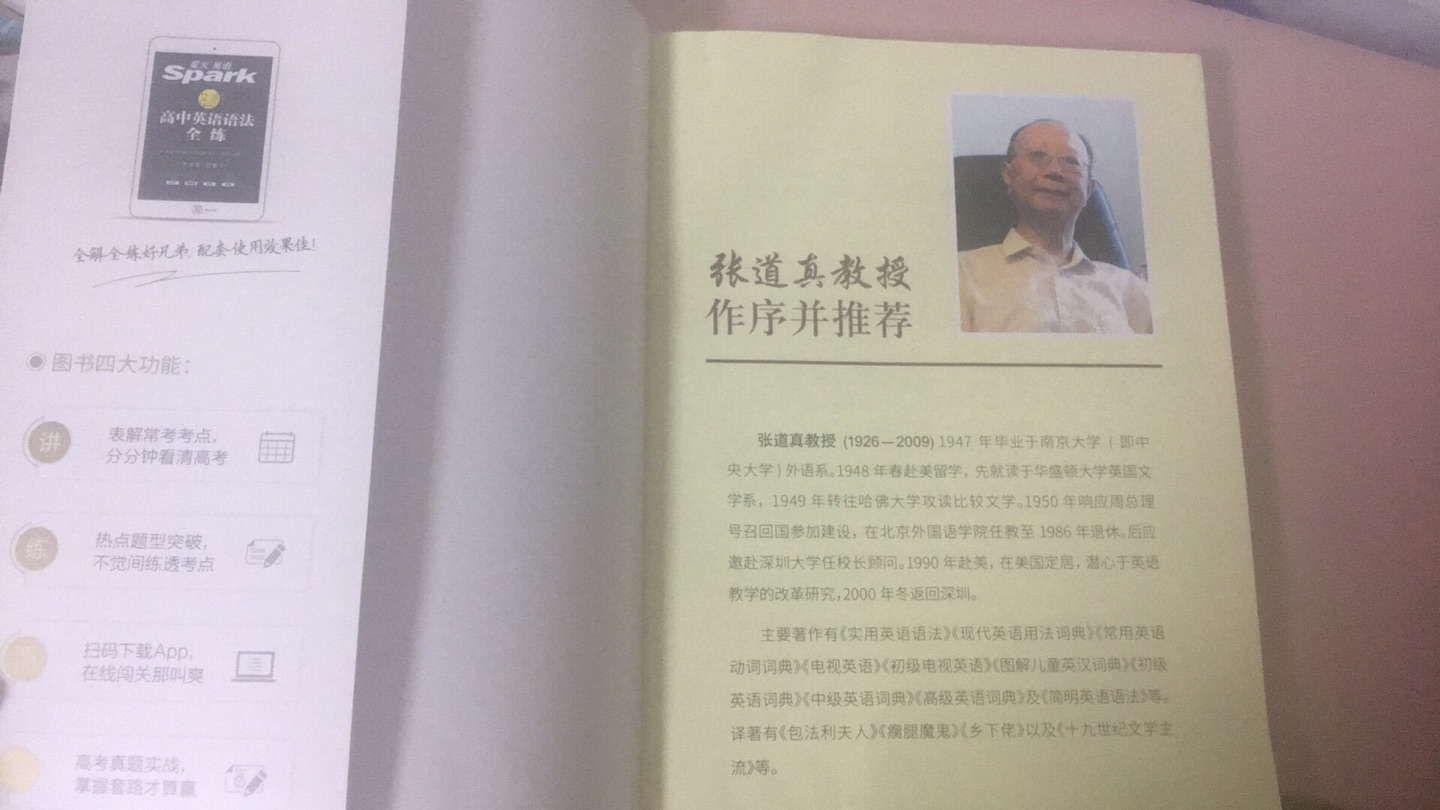 星火 英语
Spark
高中英语语法
全 练
全解全练好兄弟 配套使用效果佳!
图书四大功能:
讲
表解常考考点,
分分钟看清高考
练
热点题型突破,
不觉间练透考点
扫码下载App,
在线闯关那叫爽
高考真题实战,
掌握套路才算赢
张道真教授
作序并推荐
张道真教授 (1926—2009) 1947 年毕业于南京大学 ( 即中
央大学 ) 外语系。1948 年春赴美留学, 先就读于华盛顿大学英国文
学系, 1949 年转往哈佛大学攻读比较文学。1950 年响应周总理
号召回国参加建设, 在北京外国语学院任教至 1986 年退休。后应
邀赴深圳大学任校长顾问。1990 年赴美, 在美国定居, 潜心于英语
教学的改革研究,2000 年冬返回深圳。
主要著作有《实用英语语法》《现代英语用法词典》《常用英语
动词词典》《电视英语》《初级电视英语》《图解儿童英汉词典》《初级
英语词典》《中级英语词典》《高级英语词典》及《简明英语语法》等。
译著有《包法利夫人》《瘸腿魔鬼》《乡下佬》以及《十九世纪文学主
流》等。